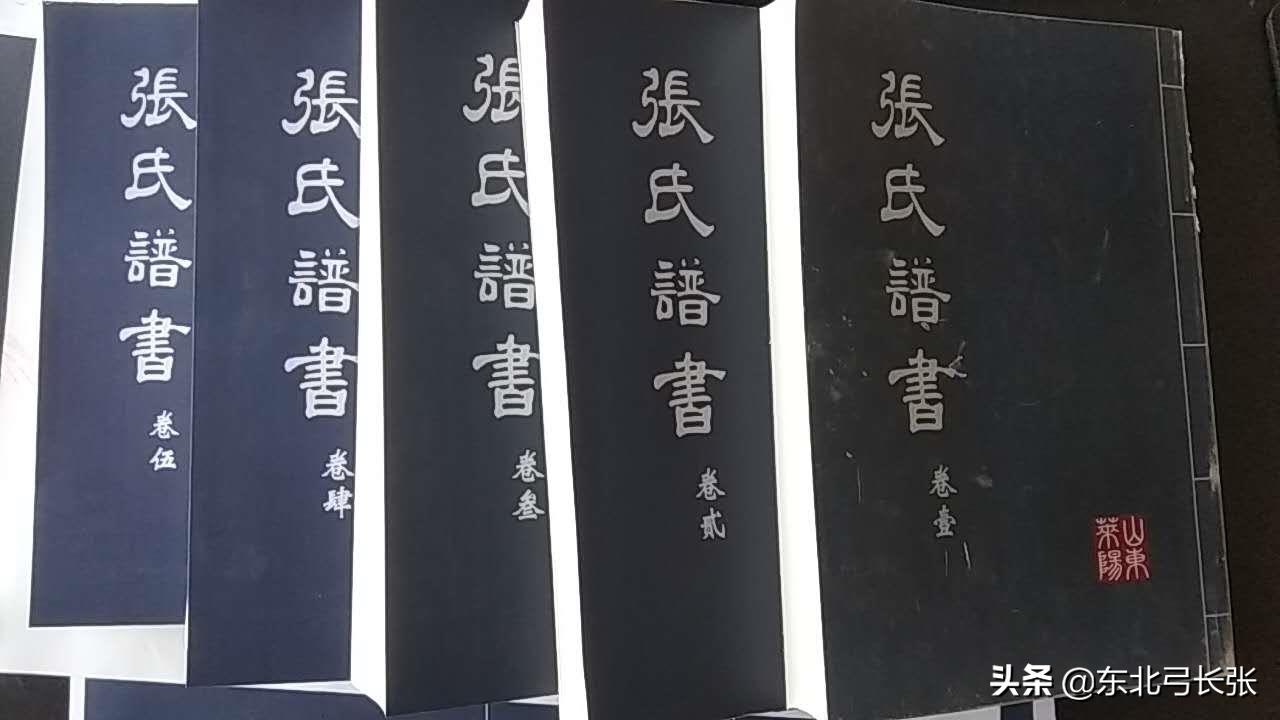 張氏譜書
卷壹
山東
萊陽
張氏譜書
卷貳
張氏譜書
卷叁
張氏譜書
卷肆
張氏譜書
卷伍
头条 @东北弓长张